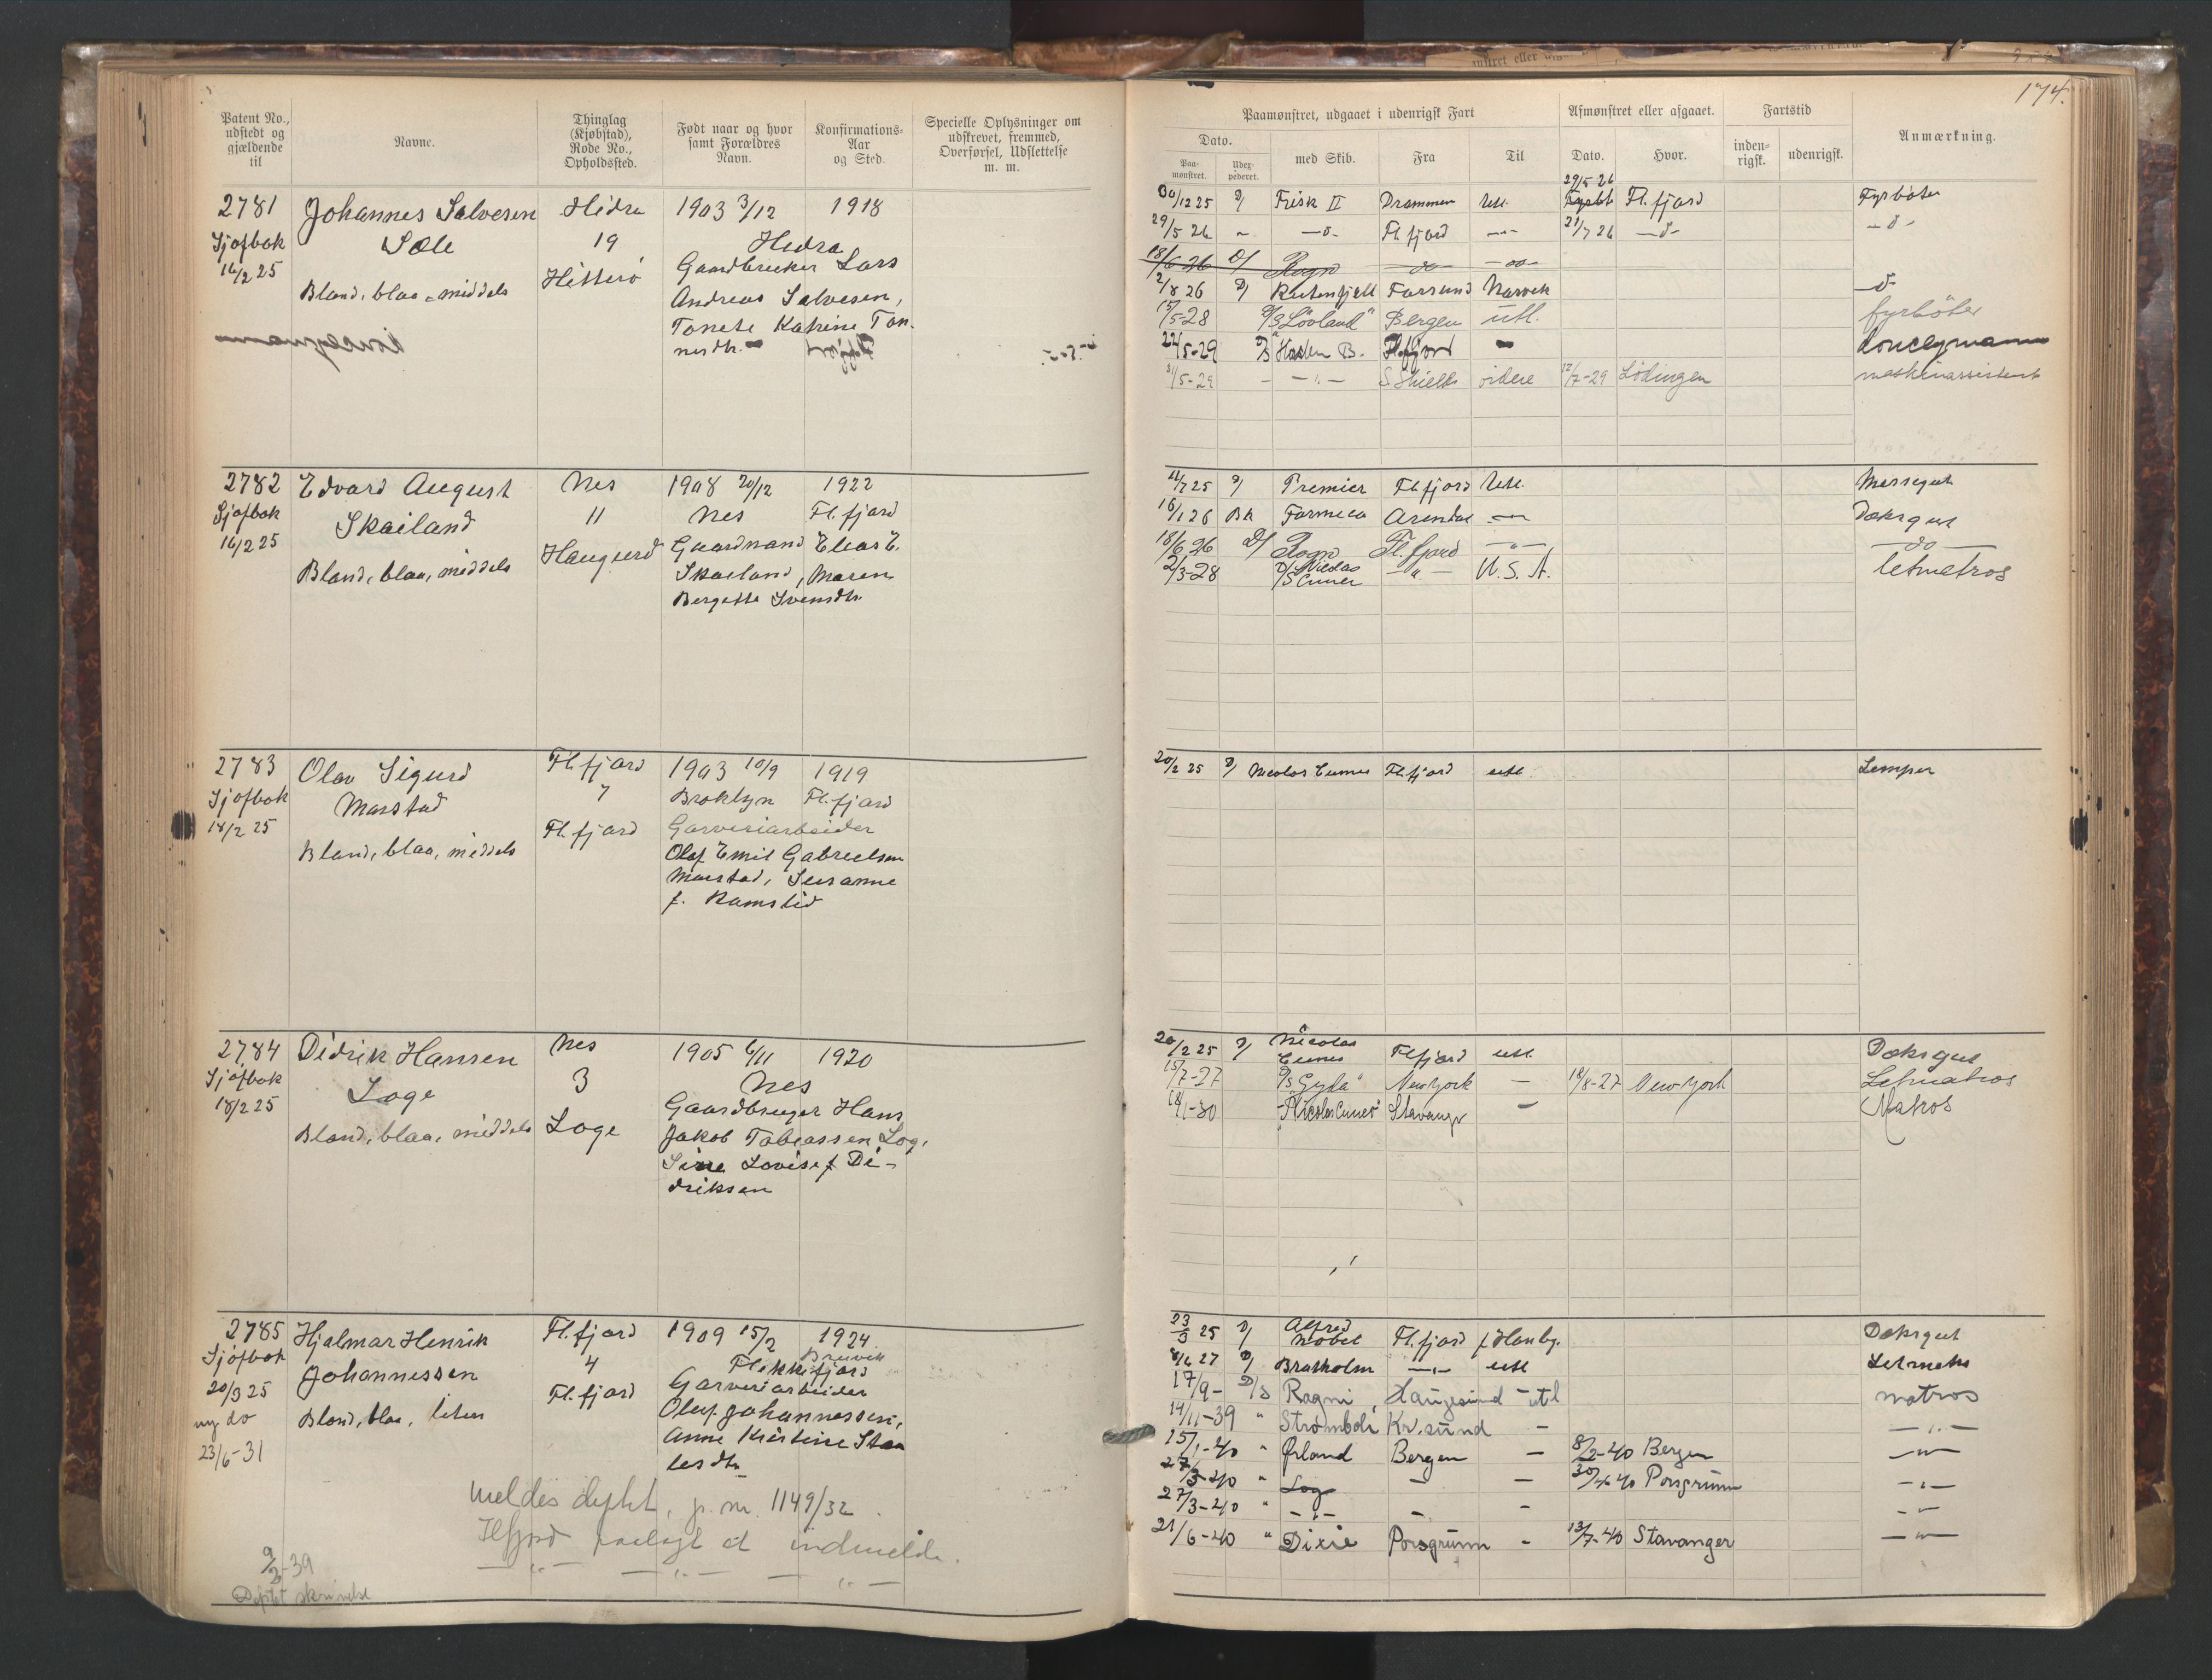 174.
Patent No., udstedt og gjældende til
Navne.
Thinglag (Kjøbstad), Rode No., Opholdssted.
Født naar og hvor samt Forældres Navn.
Konfirmations-Aar og Sted.
Specielle Oplysninger om udskrevet, fremmed, Overførsel, Udslettelse m. m.
Paamønstret, udgaaet i udenrigsk Fart
Afmønstret eller afgaaet.
Fartstid
Anmærkning.
Dato.
Paa-mønstret.
Udex-pederet.
med Skib.
Fra
Til
Dato.
Hvor.
inden-rigsk.
udenrigsk.
2781 Johannes Salvesen Hidra 1903 3/12 1918
Sjøfbok Sæle 19 Hidra
16/2 25 Hitterö Gaardbruker Lars
Bland, blaa, middels Andreas Salvesen,
Tonete Katrine Ton-
nesdtr.
30/12 25 D/ Frisk II Drammen Utl. 29/5 26 Fl.fjord Fyrböter
29/5 26 " —o— Fl.fjord —"— 21/7 26 —o— —o—
18/6 26 D/ Rogn —oo— —oo—
2/8 26 D/ Rutenfjell Farsund Narvik —o—
15/5-28 D/S "Lövland" Bergen utl. fyrböter
22/5-29 D/S "Haslem B. Fl.fjord donkeymann
31/5-29 - —"— S Shields videre 12/7-29 Lödingen maskinassistent
2782 Edvard August Nes 1908 20/12 1922
Sjøfbok Skailand 11 Nes Fl.fjord
16/2 25 Haugerd Gaardmand Elias E.
Bland, blaa, middels Skailand, Maren
Bergette Svensdtr.
D/ Premier Fl.fjord Utl. Messegut
16/1 26 Bk Formica Arendal —"— Dæksgut
18/6 26 D/ Rogn Fl.fjord —"— —do—
2/3-28 D/S Nicolas Cuneo —"— U.S.A. letmatros
2783 Olav Sigurd Fl.fjord 1903 10/9 1919
Sjøfbok Marstad 7 Broklyn Fl.fjord
18/2 25 Fl.fjord Garveriarbeider
Bland, blaa, middels Olaf Emil Gabrielsen
Marstad, Susanne
f. Ramslid
20/2 25 D/ Nicolas Cuneo Fl.fjord utl. Lemper
2784 Didrik Hansen Nes 1905 6/11 1920
Sjøfbok Loge 3 Nes
18/2 25 Loge Gaardbruger Hans
Bland, blaa, middels Jakob Tobiassen Loge
Sine Lovise f. Di-
driksen
20/2 25 D/ Nicolas Cuneo Fl.fjord utl. Dæksgut
15/7-27 D/S "Gyda" New York — 18/8-27 New York Letmatros
18/1-30 "Nicolas Cuneo" Stavanger — Matros
2785 Hjalmar Henrik Fl.fjord 1909 15/2 1924
Sjøfbok Johannessen 4 Flekkefjord Brevik
20/3 25 Fl.fjord Garveriarbeider
ny do Bland, blaa, liten Oluf Johannessen,
23/6-31 Anne Kristine Staa
lesdtr.
23/3 25 D/ Alfred Nobel Fl.fjord f Hamby. Dæksgut
8/6 27 D/ Bratholm —"— utl Letmatros
17/9- D/S Ragni, Haugesund - utl matros
14/11-39 " Stromboli Kr.sund — —"—
15/1-40 " Ørland Bergen — 8/2-40 Bergen —"—
27/3-40 " Log — — 30/4-40 Porsgrunn —"—
27/3-40 " —"— — — —"—
21/6-40 " Dixie Porsgrunn - 13/7-40 Stavanger —"—
meldes deptet, j. nr. 1149/32.
Flfjord paalagt at indmelde.
—"— —"— —"—
9/2-39
Deptet skrivelse